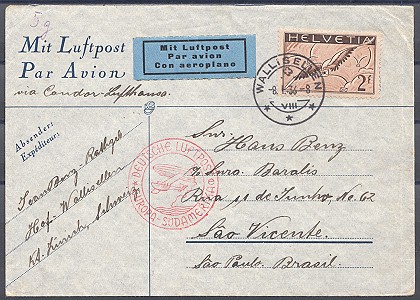 5g
Mit Luftpost
Par Avion
via Condor-Lufthansa
Mit Luftpost
Par avion
Con aeroplano
HELVETIA
2F
WALLISELLEN
VIII
Absender:
Expéditeur:
Hof-Wallisellen
Kt. Zürich, Schweiz
DEUTSCHE LUFTPOST
EUROPA-SÜDAMERIKA
Snr. Hans Benz
Snra. Baralis
Rua 11 de Junho, No. 62
São Vicente.
São Paulo. Brasil.